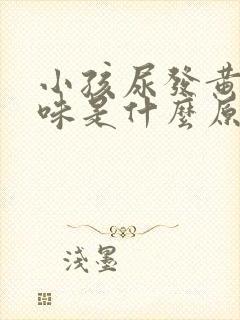 小孩尿發黃
味是什麼原
淺墨